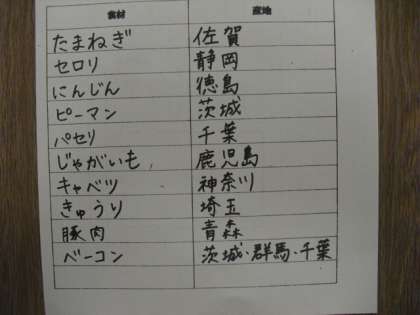 食材 産地
たまねぎ 佐賀
セロリ 静岡
にんじん 徳島
ピーマン 茨城
パセリ 千葉
じゃがいも 鹿児島
キャベツ 神奈川
きゅうり 埼玉
豚肉 青森
ベーコン 茨城・群馬・千葉